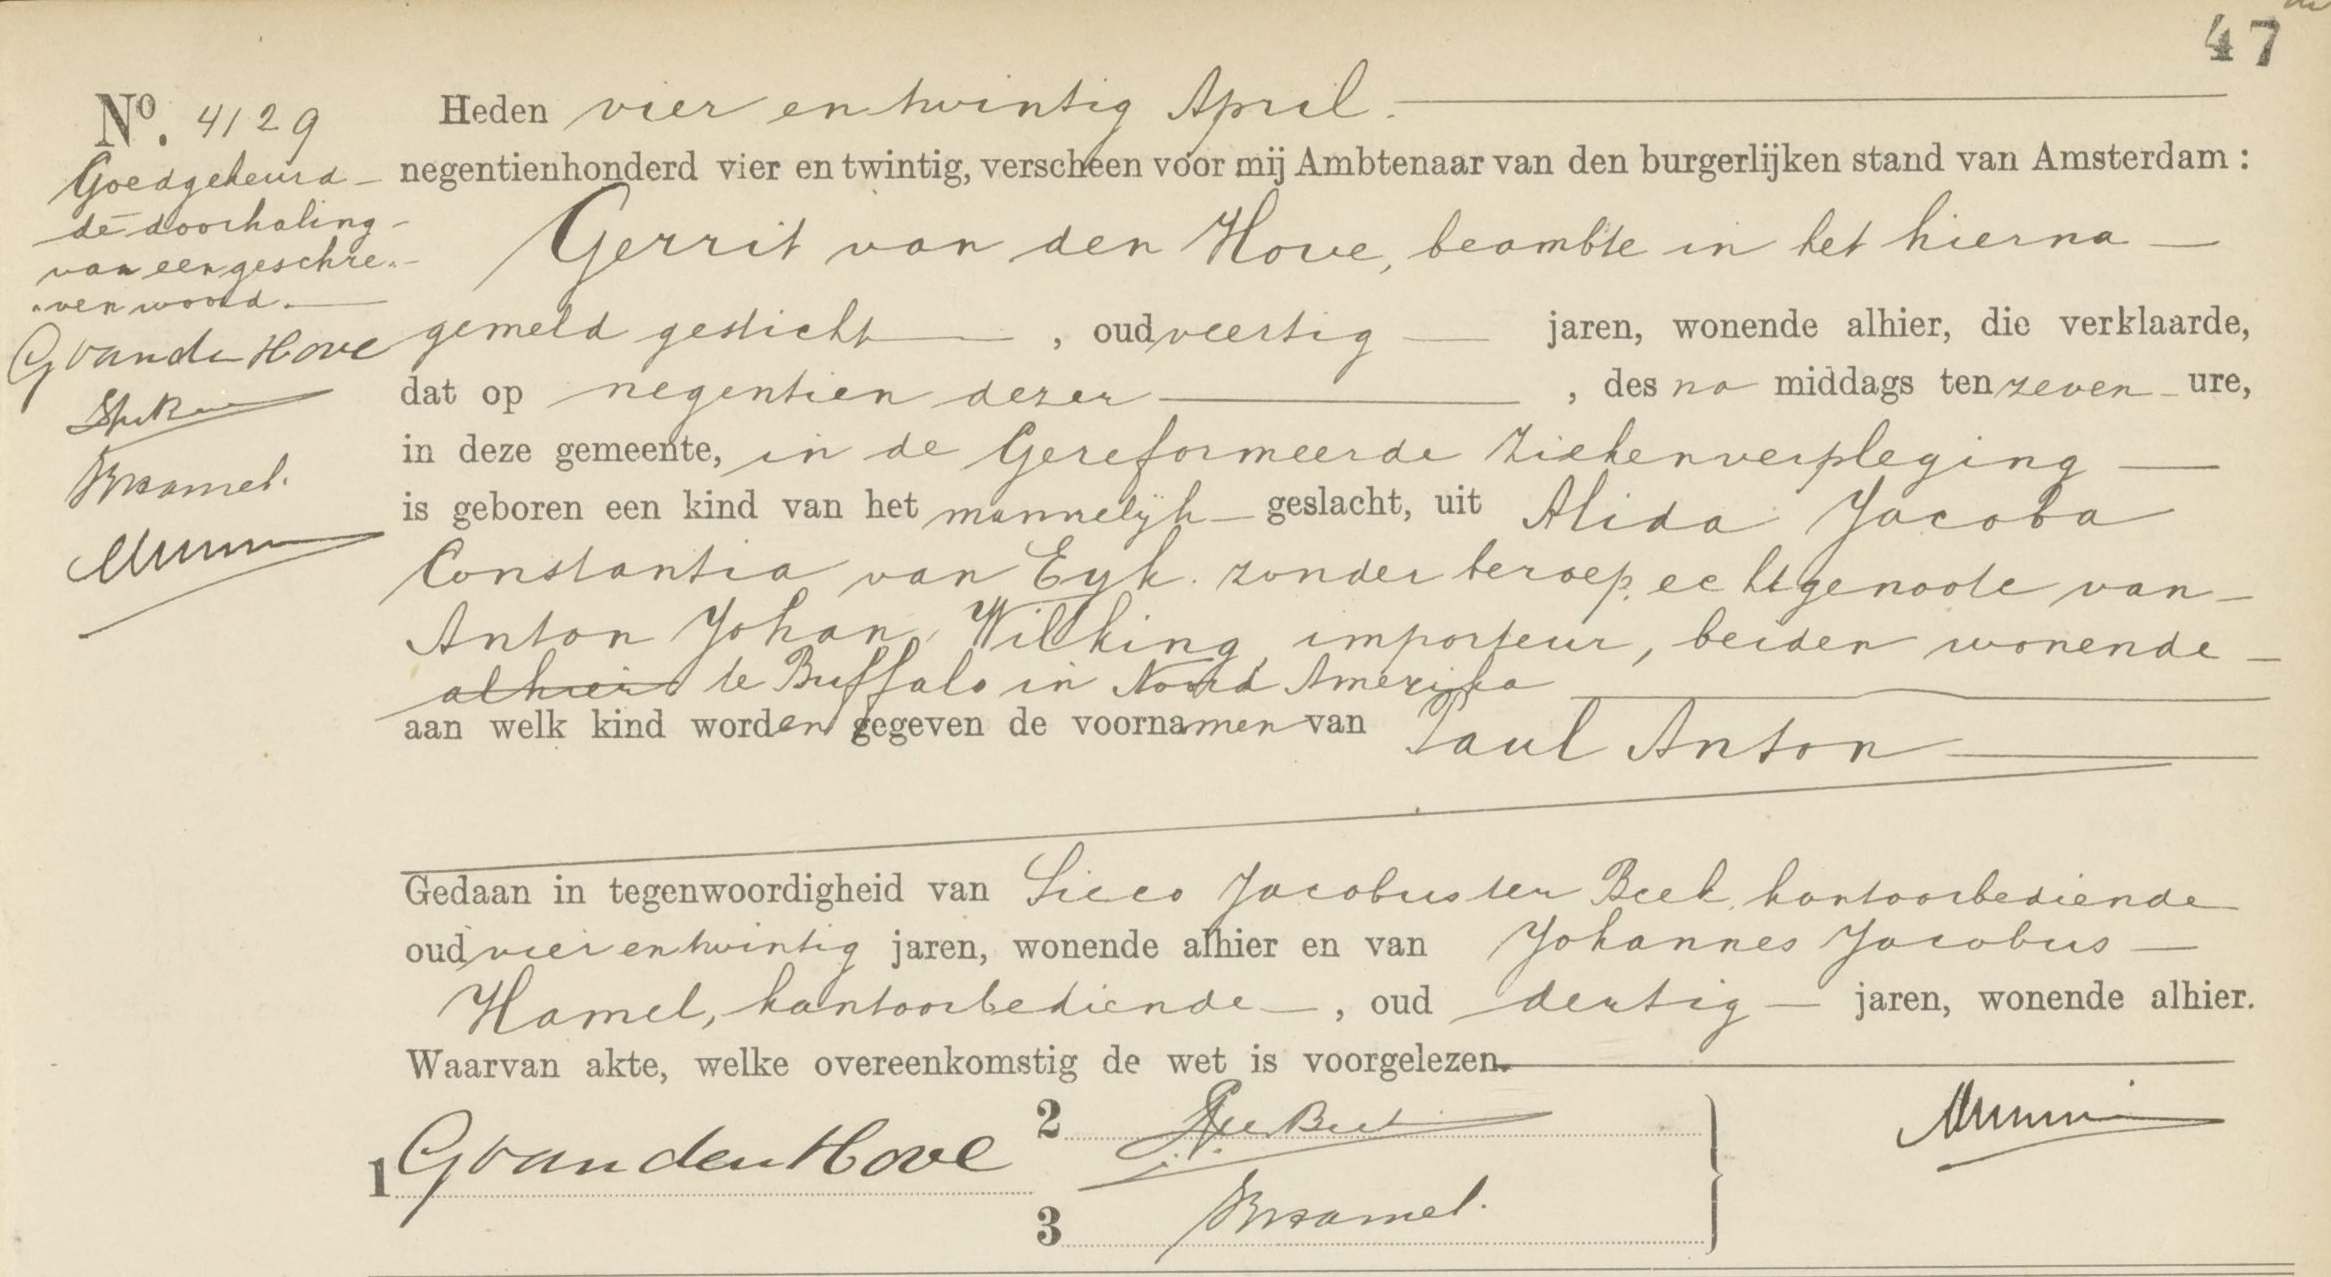 47
No. 4129
Goedgekeurd
de doorhaling
van een geschre-
-ven woord.
G van den Hove
Heden vier en twintig April.
negentienhonderd vier en twintig, verscheen voor mij Ambtenaar van den burgerlijken stand van Amsterdam:
Gerrit van den Hove, beambte in het hierna
gemeld gesticht, oud veertig jaren, wonende alhier, die verklaarde,
dat op negentien dezer, des na middags ten zeven ure,
in deze gemeente, in de Gereformeerde Ziekenverpleging
is geboren een kind van het mannelijk geslacht, uit Alida Jacoba
Constantia van Eyk. zonder beroep, echtgenoote van
Anton Johan Wilking, importeur, beiden wonende
alhier te Buffalo in Noord Amerika
aan welk kind worden gegeven de voornamen van Paul Anton
Gedaan in tegenwoordigheid van Sicco Jacobus ter Beek, kantoorbediende
oud vier en twintig jaren, wonende alhier en van Johannes Jacobus
Hamel, kantoorbediende, oud dertig jaren, wonende alhier.
Waarvan akte, welke overeenkomstig de wet is voorgelezen.
1 G van den Hove
2
3